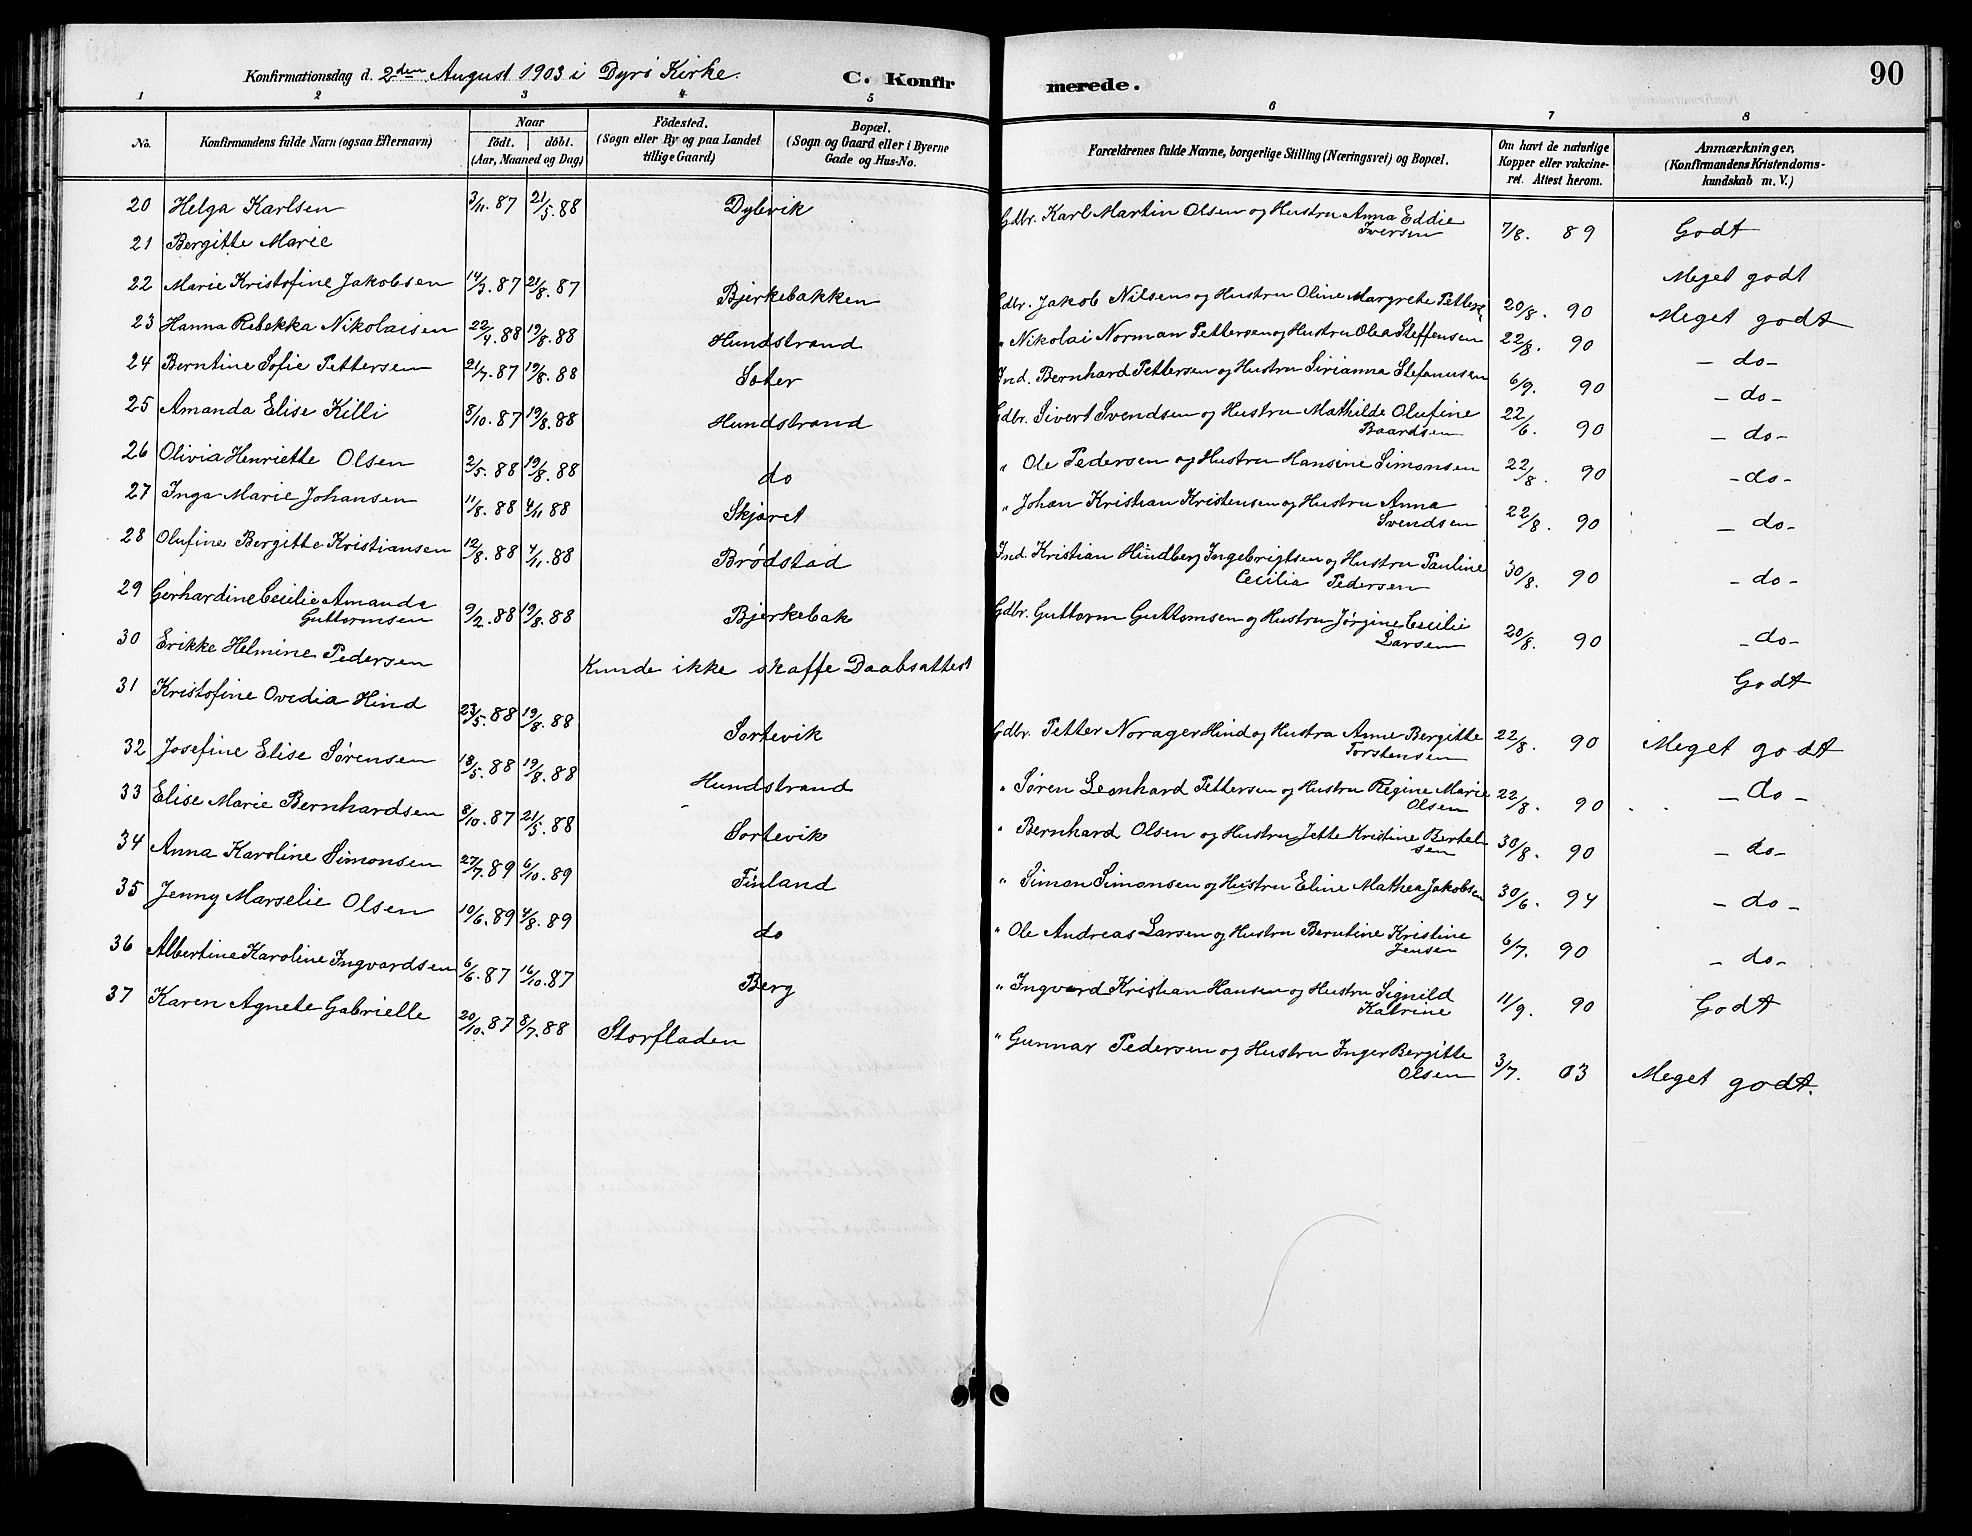 Konfirmationsdag d. 2den August 1903 i Dyrö Kirke. C. Konfirmerede. 90
1 2 3 4 5 6 7 8
No. Konfirmandens fulde Navn (ogsaa Efternavn) Naar födt. döbt. (Aar, Maaned og Dag) Födested. (Sogn eller By og paa Landet tillige Gaard) Bopæl. (Sogn og Gaard eller i Byerne Gade og Hus-No. Forældrenes fulde Navne, borgerlige Stilling (Næringsvei) og Bopæl. Om havt de naturlige Kopper eller vakcineret. Attest herom. Anmærkninger, (Konfirmandens Kristendomskundskab m. V.)
20 Helga Karlsen 3/11. 87 21/5. 88 Dylevik Gdbr. Karl Martin Olsen og Hustru Anna Eddie Iversen 7/8. 89 Godt
21 Bergitte Marie Meget godt
22 Marie Kristofine Jakobsen 14/7. 87 21/8. 87 Bjerkebakken Gdbr. Jakob Nilsen og Hustru Oline Margrete Petters. 20/8. 90 Meget godt
23 Hanna Rebekka Nikolaisen 22/4 88 19/8. 88 Hundstrand " Nikolai Norman Pettersen og Hustru Olea Steffensen 22/8. 90 - do -
24 Berntine Sofie Pettersen 21/7. 87 19/8. 88 Soter Ind. Bernhard Pettersen og Hustru Sirianna Stefanusen 6/9. 90 - do -
25 Amanda Elise Killi 8/10. 87 19/8. 88 Hundstrand Gdbr. Sivert Svendsen og Hustru Mathilde Olufine Baardsen 22/6. 90 - do -
26 Olivia Henriette Olsen 2/5. 88 19/8. 88 do " Ole Pedersen og Hustru Hansine Simonsen 22/8. 90 - do -
27 Inga Marie Johansen 11/8. 88 4/11. 88 Skjæret " Johan Kristian Kristensen og Hustru Anna Svendsen 22/8. 90 - do -
28 Olufine Bergitte Kristiansen 12/8. 88 4/11. 88 Brødstad Ind. Kristian Hindberg Ingebrigtsen og Hustru Pauline Cecilia Pedersen 30/8. 90 - do -
29 Gerhardine Cecilie Amanda Guttormsen 9/2. 88 19/8. 88 Bjerkebak Gdbr. Guttorm Guttomsen og Hustru Jørgine Cecilie Larsen 20/8. 90 - do -
30 Erikke Helmine Pedersen Kunde ikke skaffe Daabsattest Godt
31 Kristofine Ovedia Hind 23/5. 88 19/8. 88 Sortevik Gdbr. Petter Norager Hind og Hustru Anne Bergitte Torstensen 22/8. 90 Meget godt
32 Josefine Elise Sørensen 18/5. 88 19/8. 88 Hundstrand " Søren Leonhard Pettersen og Hustru Regine Marie Olsen 22/8. 90 - do -
33 Elise Marie Bernhardsen 8/10. 87 21/5. 88 Sortevik " Bernhard Olsen og Hustru Jette Kristine Bertelsen 30/8. 90 - do -
34 Anna Karoline Simonsen 27/7. 89 6/10. 89 Finland " Simon Simonsen og Hustru Eline Mathea Jakobsen 30/6. 94 - do -
35 Jenny Marselie Olsen 10/6. 89 4/8. 89 do " Ole Andreas Larsen og Hustru Berntine Kristine Jensen 6/7. 90 - do -
36 Albertine Karoline Ingvardsen 6/6. 87 16/10. 87 Berg " Ingvard Kristian Hansen og Hustru Signild Katrine 11/9. 90 Godt
37 Karen Agnete Gabrielle 20/10. 87 8/7. 88 Storfladen " Gunnar Pedersen og Hustru Inger Bergitte Olsen 3/7. 03 Meget godt.